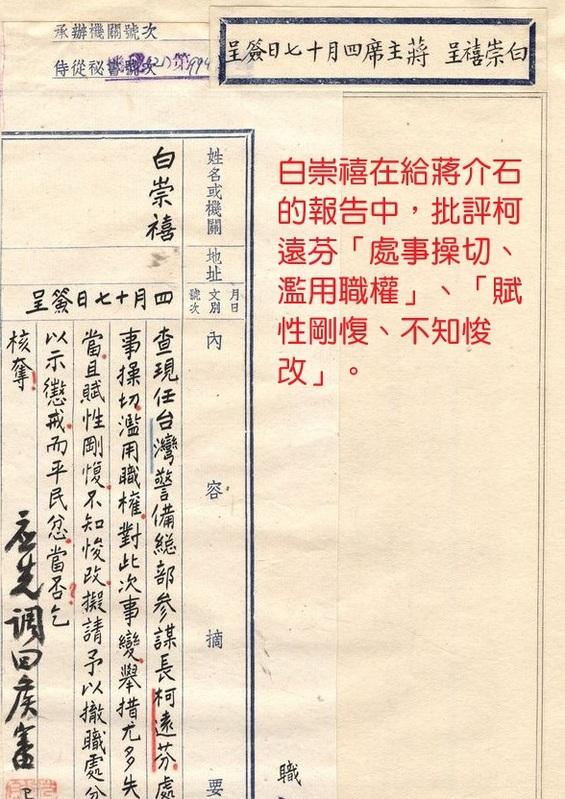 白崇禧呈 蔣主席四月十七日簽呈
承辦機關號次
侍從秘
第994
白崇禧在給蔣介石
的報告中，批評柯
遠芬「處事操切、
濫用職權」、「賦
性剛愎、不知悛
改」。
姓名或機關
白崇禧
地址
月日
文別
號次
四月十七日簽呈
內容摘要
查現任台灣警備總部參謀長柯遠芬處
事操切濫用職權對此次事變舉措尤多失
當且賦性剛愎不知悛改擬請予以撤職處分
以示懲戒而平民忿當否乞
核奪
应先调回候審
職